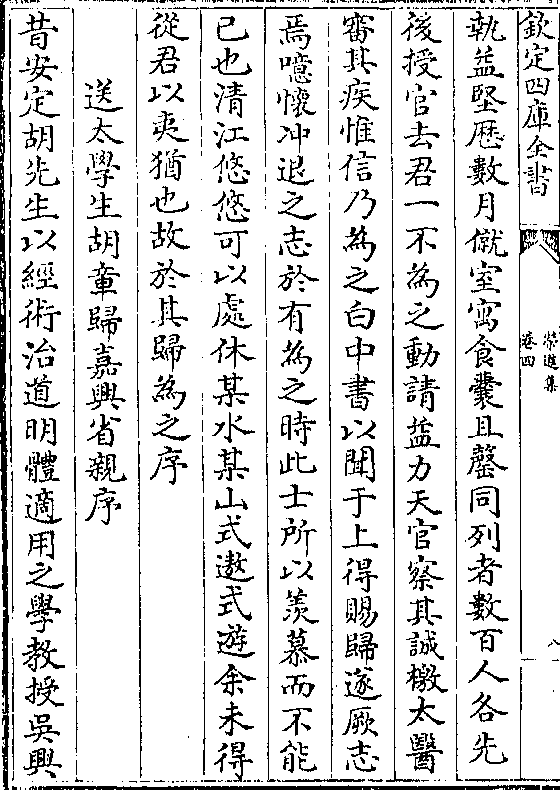 欽定四庫全書
榮進集
卷四
八
執益堅歷數月僦室寓食囊且罄同列者數百人各先
後授官去君一不為之動請益力天官察其誠檄太醫
審其疾惟信乃為之白中書以聞于上得賜歸遂厥志
焉噫懷冲退之志於有為之時此士所以羨慕而不能
已也清江悠悠可以處休某水某山式遨式遊余未得
從君以爽猶也故於其歸為之序
送太學生胡章歸嘉興省親序
昔安定胡先生以經術治道明體適用之學教授吳興